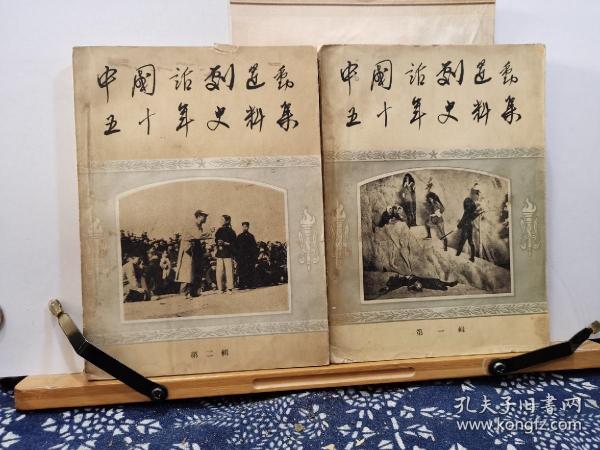 中國話劇运動
五十年史料集
第二輯
中國話劇运動
五十年史料集
第一輯
孔夫子旧書网
www.kongfz.com